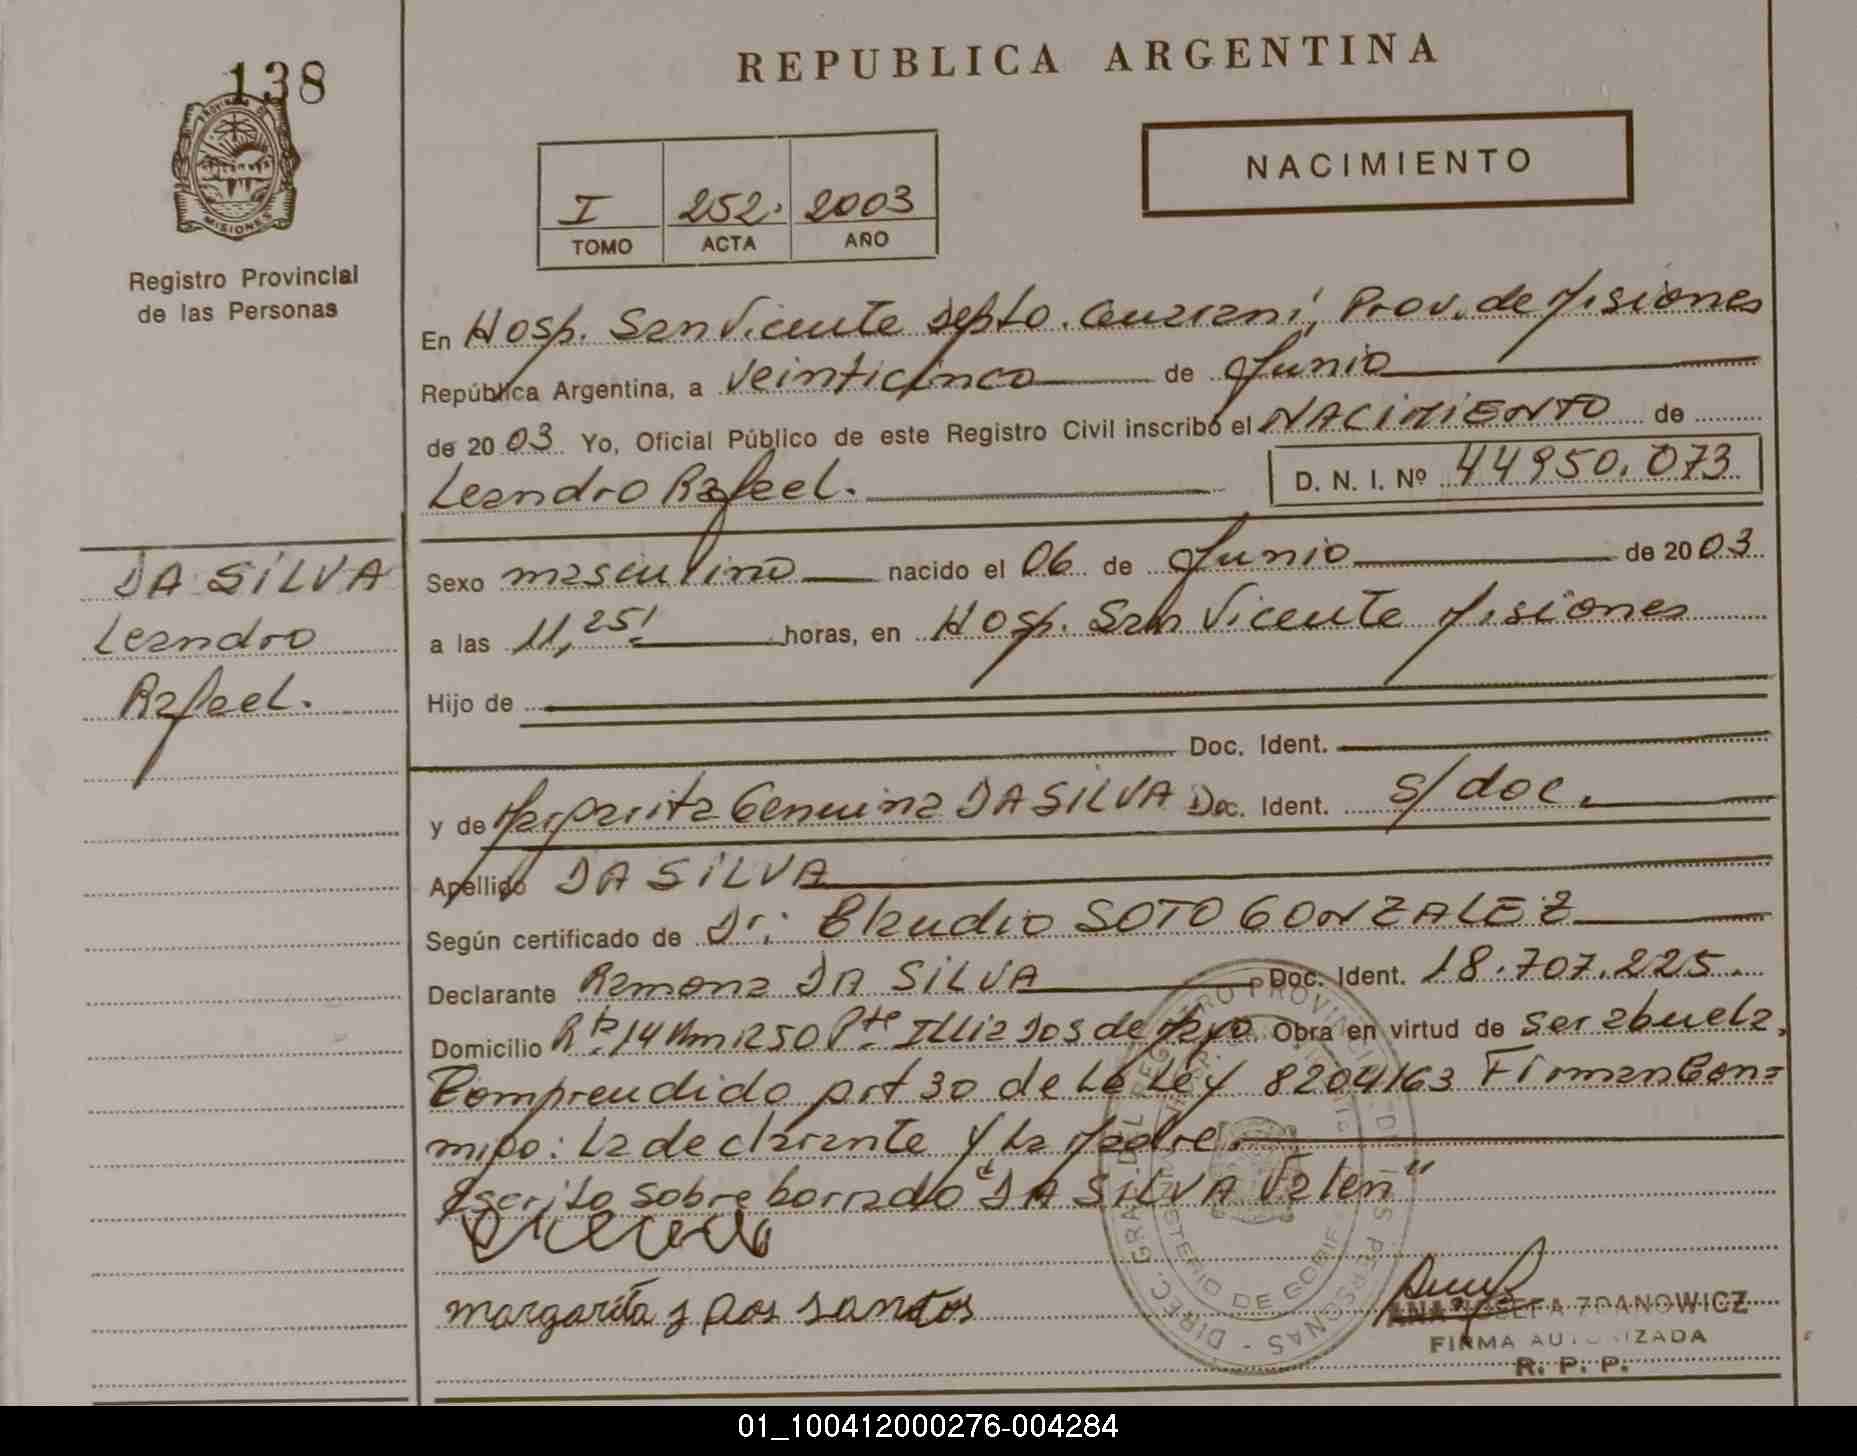 138
REPUBLICA ARGENTINA
NACIMIENTO
I 252. 2003
TOMO ACTA AÑO
PROVINCIA DE MISIONES
Registro Provincial
de las Personas
En Hosp. San Vicente Depto. Guaraní, Prov. de Misiones
República Argentina, a veinticinco de Junio
de 2003. Yo, Oficial Público de este Registro Civil inscribo el NACIMIENTO de
Leandro Rafael.
D. N. I. Nº 44950.073
DA SILVA
Leandro
Rafael.
Sexo masculino nacido el 06 de Junio de 2003
a las 11,25' horas, en Hosp. San Vicente Misiones
Hijo de
Doc. Ident.
y de Margarita DA SILVA Doc. Ident. s/doc.
Apellido DA SILVA
Según certificado de Dr: Claudio SOTO GONZALEZ
Declarante Ramona DA SILVA Doc. Ident. 18.707.225.
Domicilio Rta. 14 Km 1250 Dos de Mayo Obra en virtud de ser abuela.
Comprendido art 30 de la Ley 8204/63 Firman Con=
migo: La declarante y la Madre.
Escrito sobre borrado "DA SILVA Valen"
margarita dos santos
ANA JOSEFA ZDANOWICZ
FIRMA AUTORIZADA
R. P. P.
01_100412000276-004284